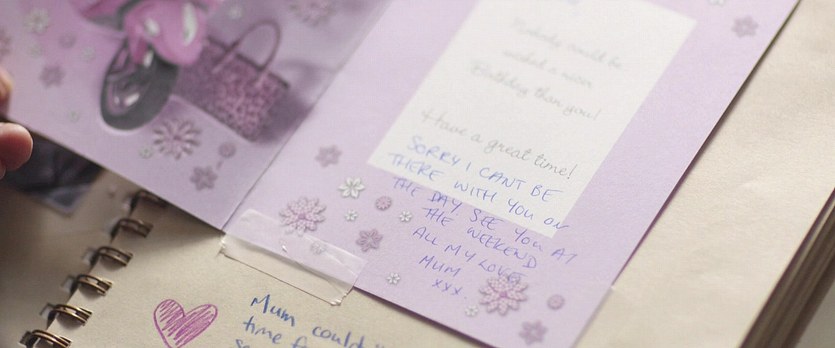 Nobody could be
wished a nicer
Birthday than you!
Have a great time!
SORRY I CANT BE
THERE WITH YOU ON
THE DAY. SEE YOU AT
THE WEEKEND
ALL MY LOVE
MUM
xxx.
Mum could
time